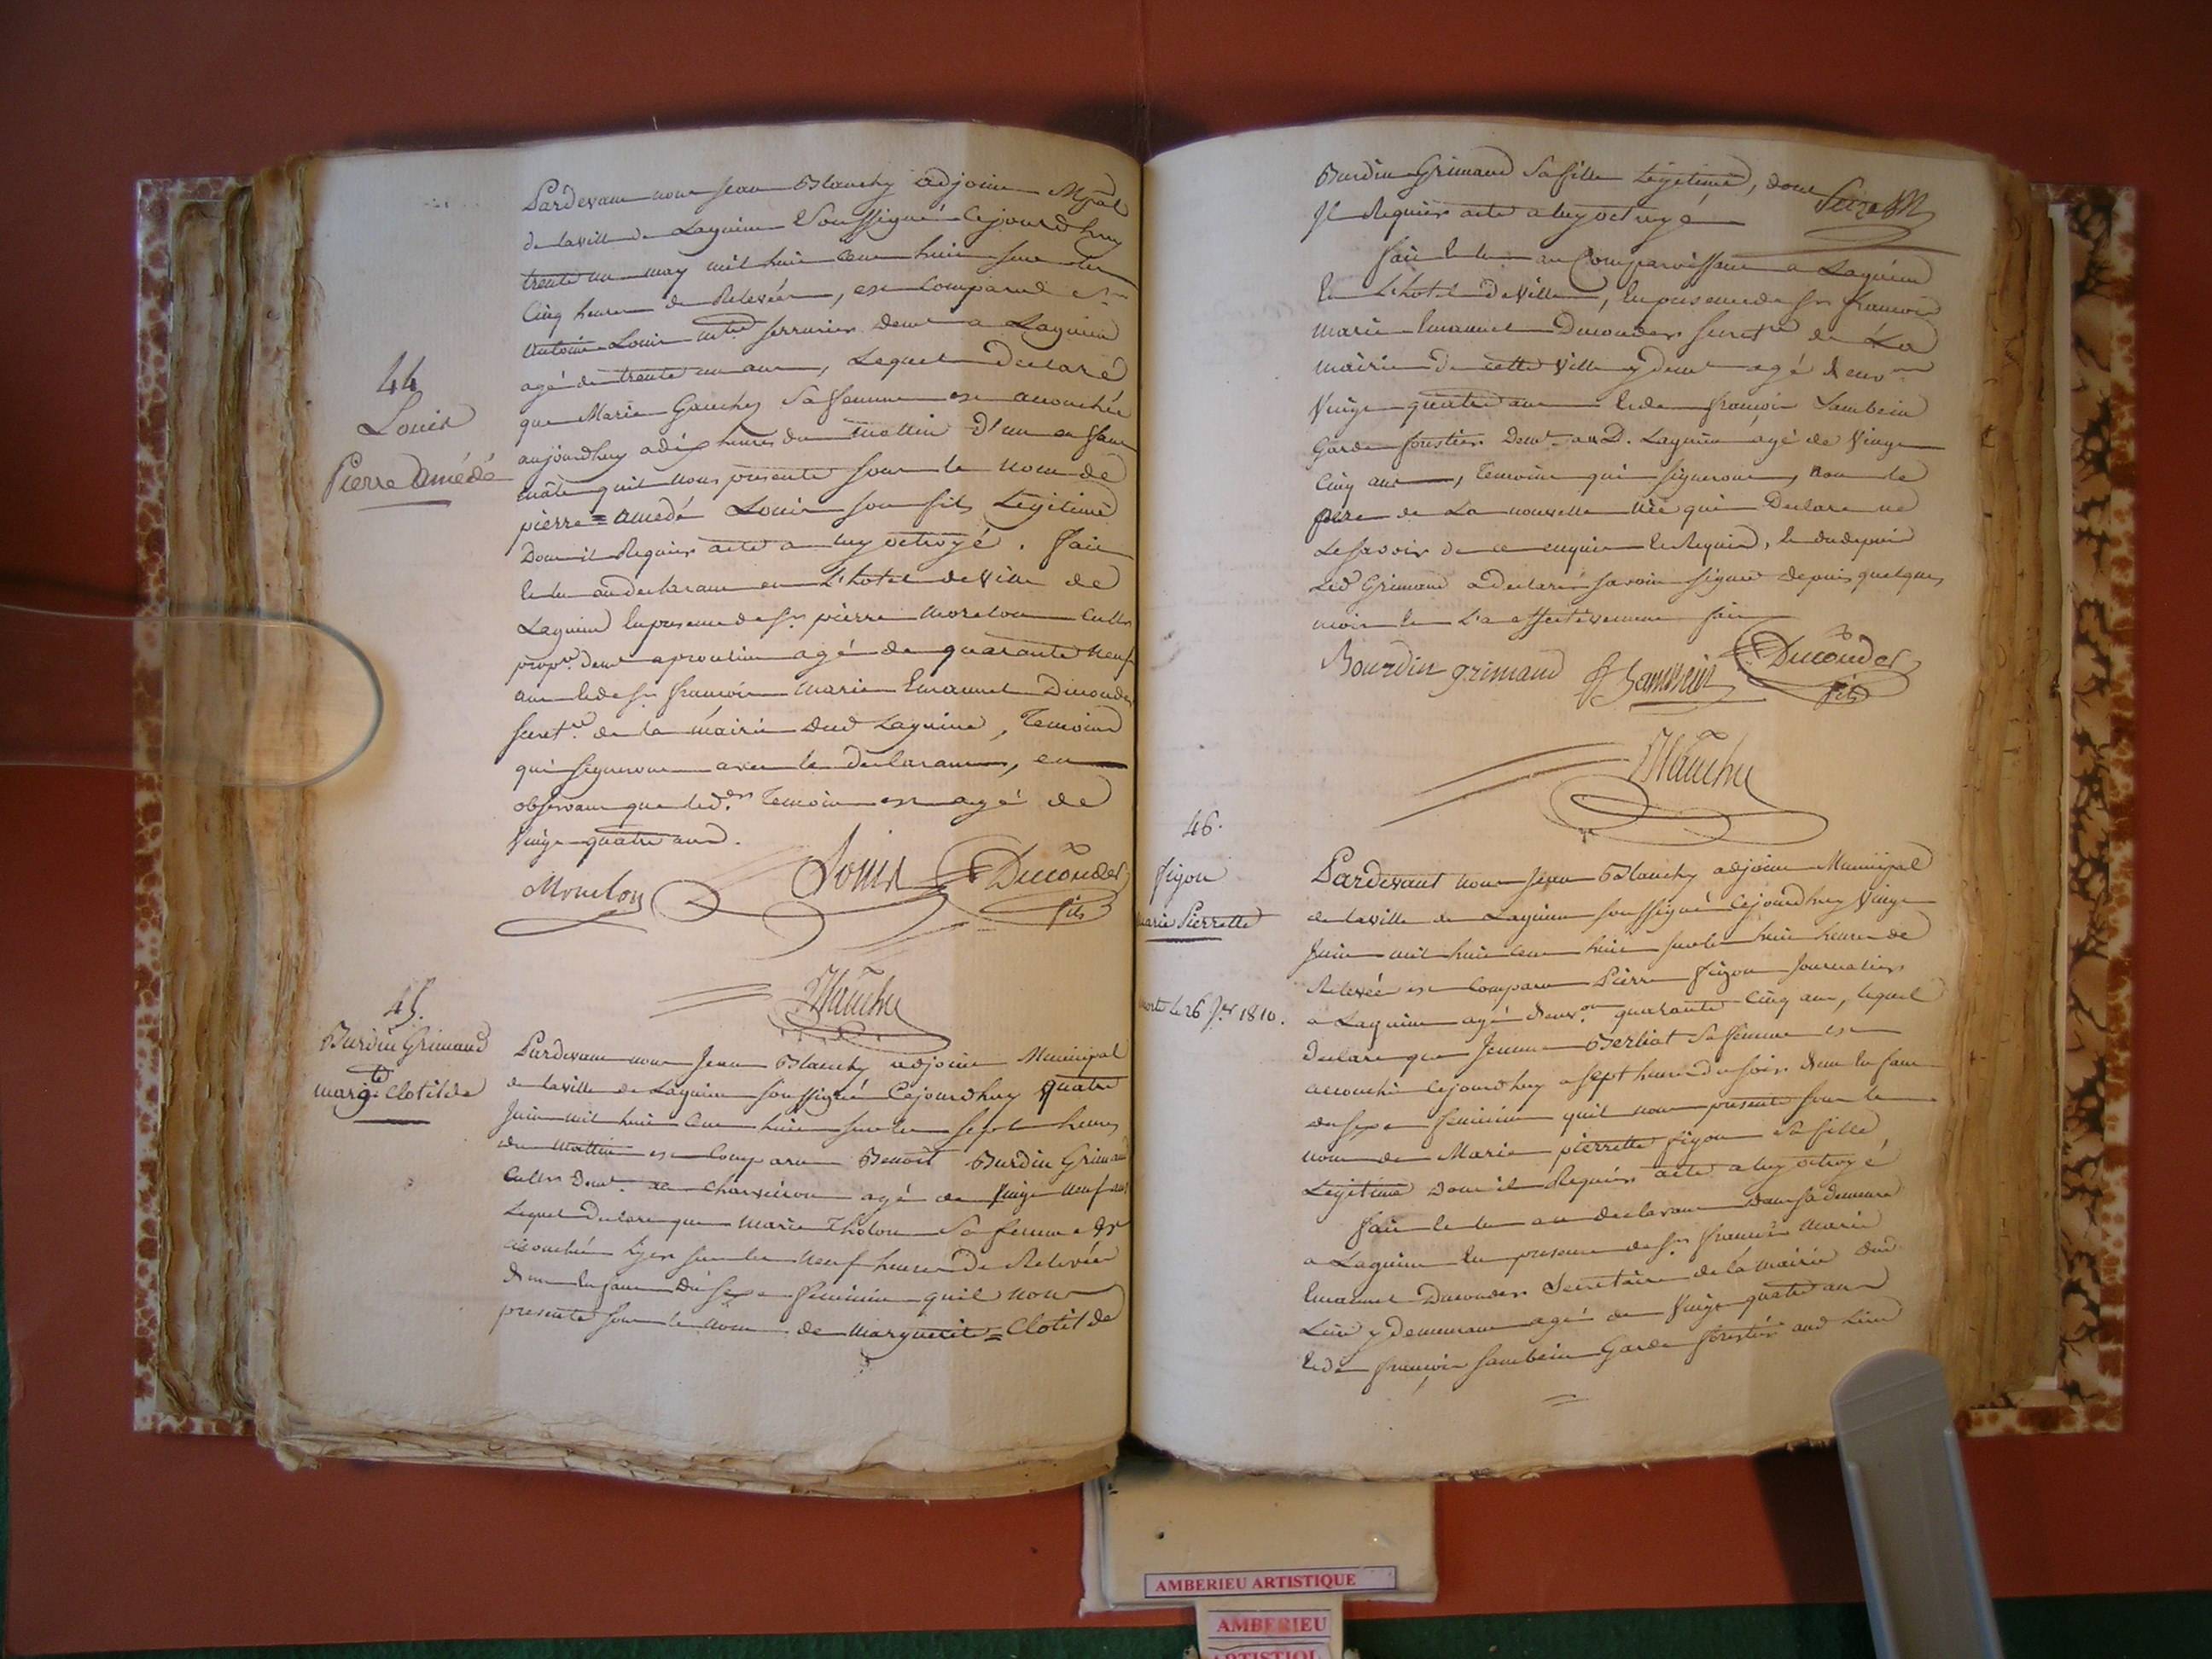 44
Louis
Pierre Amédé
Pardevant nous Jean Blanchy adjoint Mpal
de la ville de Lagnieu Soussigné Cejourdhuy
trente un may mil huit Cent huit sur les
Cinq heures de Relevée, est Comparu Sr
Antoine Louis mtre serrurier demt a Lagnieu
agé de trente un ans, Lequel Declaré
que Marie Gauchez Sa femme est accouchée
aujourdhuy a dix heures du mattin d'un enfant
mâle quil nous présente sous le nom de
pierre = amedé Louis son fils Légitime
Dont il Requier acte a luy octroyé. Fait
et lu au declarant en L'hotel de Ville de
Lagnieu En presence de Sr pierre Moreton cultr
propre demt a proulieu agé de quarante neuf
ans et de Sr francois Marie Emanuel Ducouder
secretre de la mairie dud Lagnieu, Temoins
qui signeront avec le declarant, en
observant que led. der Temoin est agé de
Vingt quatre ans.
Moreton Louis Ducouder
fils
Blanchy
45.
Burdin Grimaud
margte Clotilde
Pardevant nous Jean Blanchy adjoint Municipal
de la ville de Lagnieu soussigné Cejourdhuy quatre
Juin mil huit Cent huit sur les sept heures
du mattin est Comparu Benoit Burdin Grimaud
Cultr demt a Charveiron agé de Vingt neuf ans
Lequel Declare que Marie Tholon Sa femme est
accouchée hyer sur les neuf heures de Relevée
d'un Enfant du sexe feminin quil nous
presente sous le nom de Marguerite = Clotilde
Burdin Grimaud Sa fille Légitime, dont
Il Requier acte a luy octroyé
Fait et lu au Comparoissant a Lagnieu
En L'hotel de Ville, En presence de Sr francois
Marie Emanuel Ducouder secretre de La
mairie de cette Ville y demt agé d'envon
Vingt quatre ans et de francois Sambein
Garde forestier demt au D. Lagnieu agé de Vingt
Cinq ans, Temoins qui signeront, non le
père de La nouvelle née qui Declare ne
Le savoir de ce enquis et Requis, et du depuis
Led Grimaud a declaré savoir signer depuis quelques
mois et L'a effectivement fait
Bourdin grimaud Sambein Ducouder
fils
Blanchy
46.
figon
marie Pierrette
morte le 26 1810.
Pardevant nous Jean Blanchy adjoint Municipal
de la ville de Lagnieu soussigné Cejourdhuy Vingt
Juin mil huit Cent huit sur les huit heures de
Relevée est Comparu Pierre figon Journalier
a Lagnieu agé d'envon quarante Cinq ans, lequel
declare que Jeanne Berliat Sa femme est
accouchée Cejourdhuy a sept heures du soir d'un Enfant
du sexe feminin quil nous presente sous le
nom de Marie pierrette figon Sa fille
Légitime Dont il Requier acte a luy octroyé
Fait et lu au declarant dans sa demeure
a Lagnieu En presence de Sr francois Marie
Emanuel Ducouder Secretaire de la Mairie dud
Lieu y demeurant agé de Vingt quatre ans
et de francois Sambein Garde forestier aud Lieu
AMBERIEU ARTISTIQUE
AMBERIEU